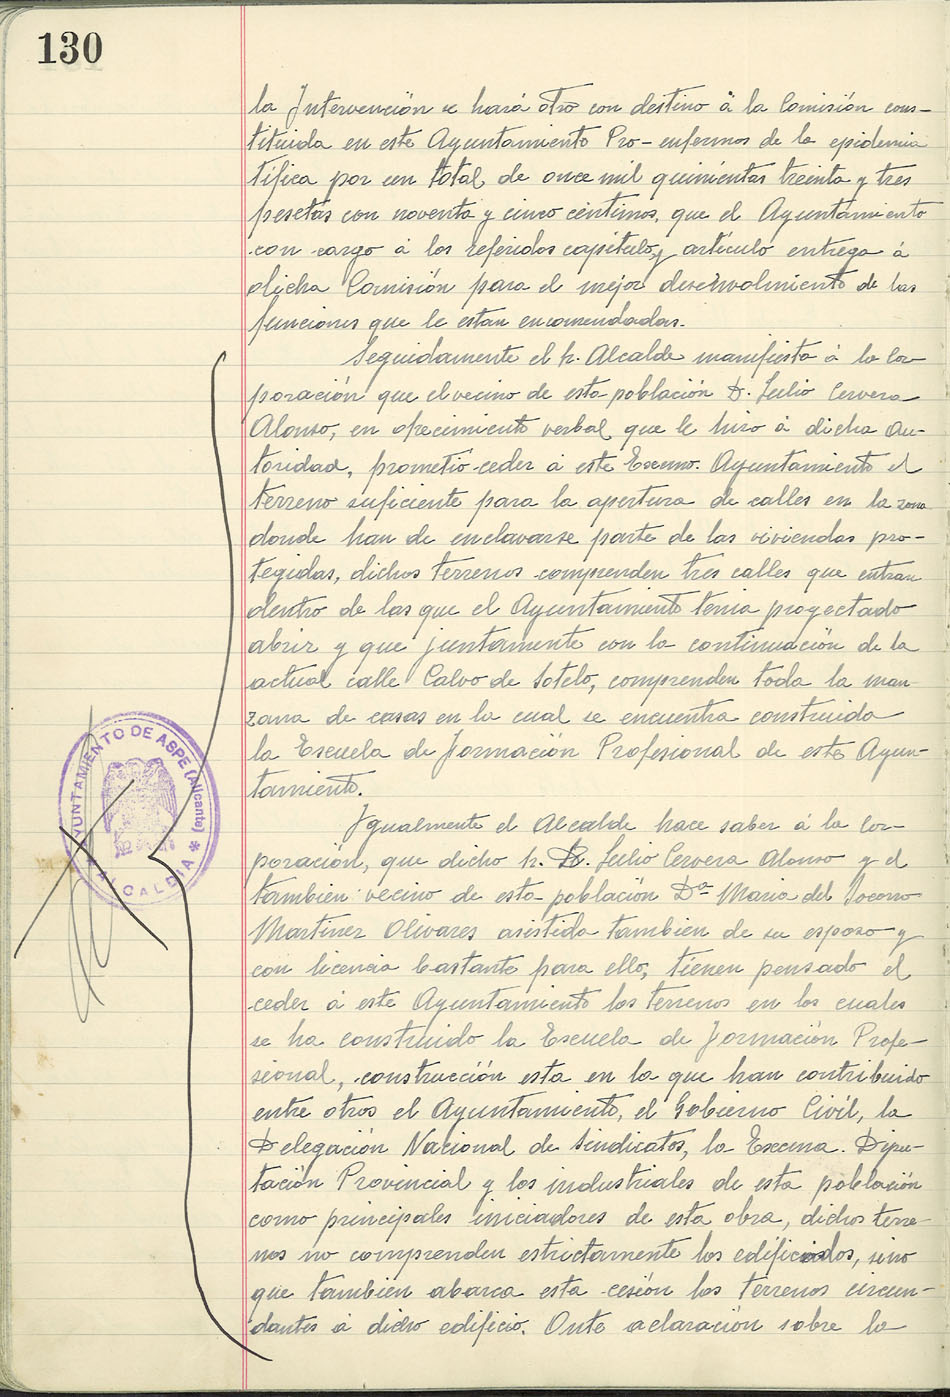 130
la Intervención se hará otro con destino á la Comisión cons-
tituida en este Ayuntamiento Pro-enfermos de la epidemia
tífica por un total de once mil quinientas treinta y tres
pesetas con noventa y cinco céntimos, que el Ayuntamiento
con cargo á los referidos capítulo y artículo entrega á
dicha Comisión para el mejor desenvolvimiento de las
funciones que le estan encomendadas.
Seguidamente el Sr. Alcalde manifiesta á la Cor-
poración que el vecino de esta población D. Julio Cervera
Alonso, en ofrecimiento verbal que le hizo á dicha Au-
toridad, prometió ceder á este Excmo. Ayuntamiento el
terreno suficiente para la apertura de calles en la zona
donde han de enclavarse parte de las viviendas pro-
tegidas, dichos terrenos comprenden tres calles que entran
dentro de las que el Ayuntamiento tenia proyectado
abrir y que juntamente con la continuación de la
actual calle Calvo de Sotelo, comprenden toda la man-
zana de casas en la cual se encuentra construida
la Escuela de Formación Profesional de este Ayun-
tamiento.
Igualmente el Alcalde hace saber á la Cor-
poración, que dicho Sr. D. Julio Cervera Alonso y el
tambien vecino de esta población Dª Maria del Socorro
Martinez Olivares asistida tambien de su esposo y
con licencia bastante para ello, tienen pensado el
ceder á este Ayuntamiento los terrenos en los cuales
se ha construido la Escuela de Formación Profe-
sional, construcción esta en la que han contribuido
entre otros el Ayuntamiento, el Gobierno Civil, la
Delegación Nacional de Sindicatos, la Excma. Dipu-
tación Provincial y los industriales de esta población
como principales iniciadores de esta obra, dichos terre-
nos no comprenden estrictamente los edificados, sino
que tambien abarca esta cesión los terrenos circun-
dantes á dicho edificio. Ante aclaración sobre la
AYUNTAMIENTO DE ASPE (Alicante)
ALCALDIA